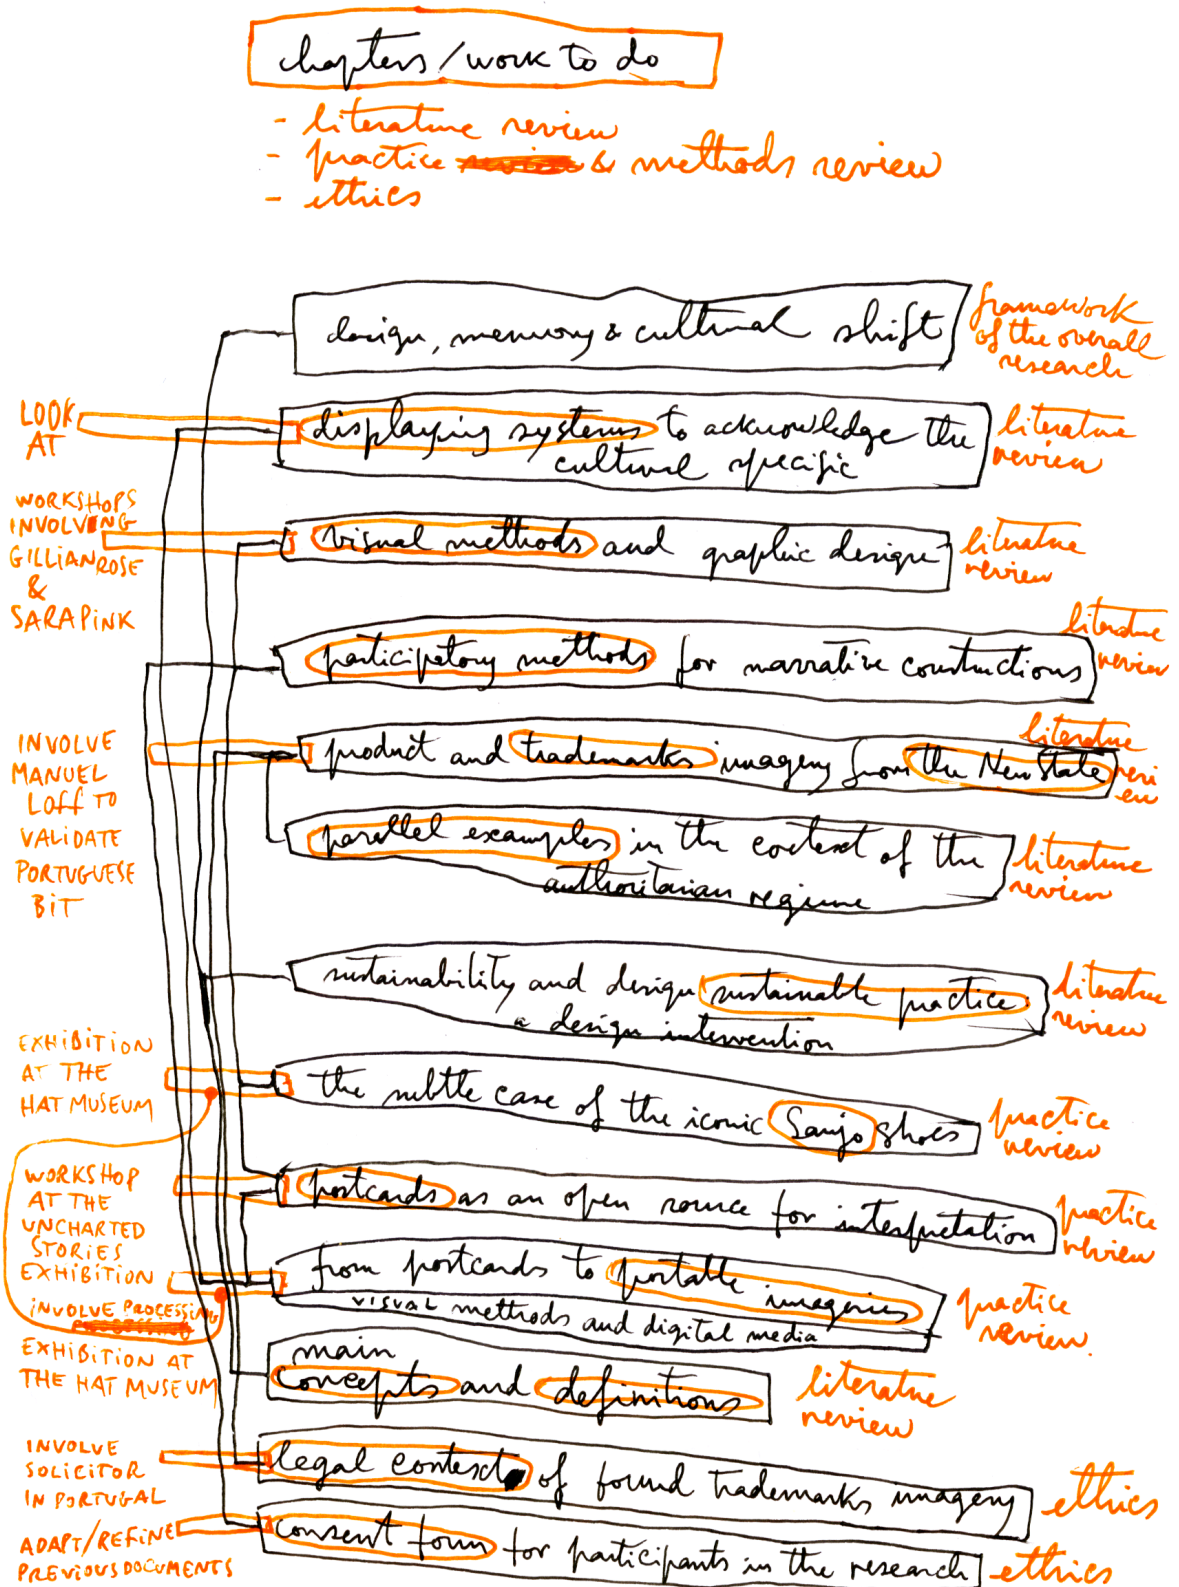 chapters/work to do
- literature review
- practice & methods review
- ethics
design, memory & cultural shift
framework
of the overall
research
LOOK
AT
displaying systems to acknowledge the
cultural specific
literature
review
WORKSHOPS
INVOLVING
GILLIAN ROSE
&
SARA PINK
visual methods and graphic design
literature
review
participatory methods for narrative constructions
literature
review
INVOLVE
MANUEL
LOFF TO
VALIDATE
PORTUGUESE
BIT
product and trademarks imagery from the New State
literature
revi
ew
parallel examples in the context of the
authoritarian regime
literature
review
sustainability and design sustainable practice:
a design intervention
literature
review
EXHIBITION
AT THE
HAT MUSEUM
the subtle case of the iconic Sanjo shoes
practice
review
WORKSHOP
AT THE
UNCHARTED
STORIES
EXHIBITION
postcards as an open source for interpretation
practice
review
INVOLVE PROCESSING
EXHIBITION AT
THE HAT MUSEUM
from postcards to portable imageries
visual methods and digital media
practice
review.
main
concepts and definitions
literature
review
INVOLVE
SOLICITOR
IN PORTUGAL
legal context of found trademarks imagery
ethics
ADAPT/REFINE
PREVIOUS DOCUMENTS
consent form for participants in the research
ethics